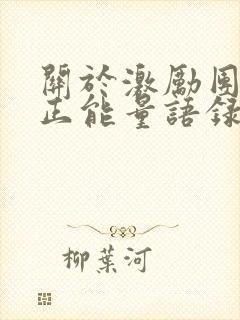 關於激勵團
正能量語錄
柳葉河